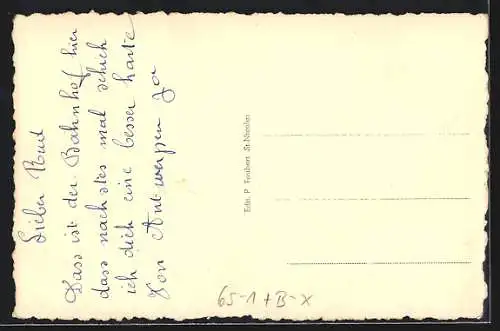 Lieber Kurt
Dass ist der Bahnhof hier
dass nachstes mal schick
ich dich eine besser karte
Von Antwerpen Ja
Edit. P. St-Nicolas
65-1+B-X